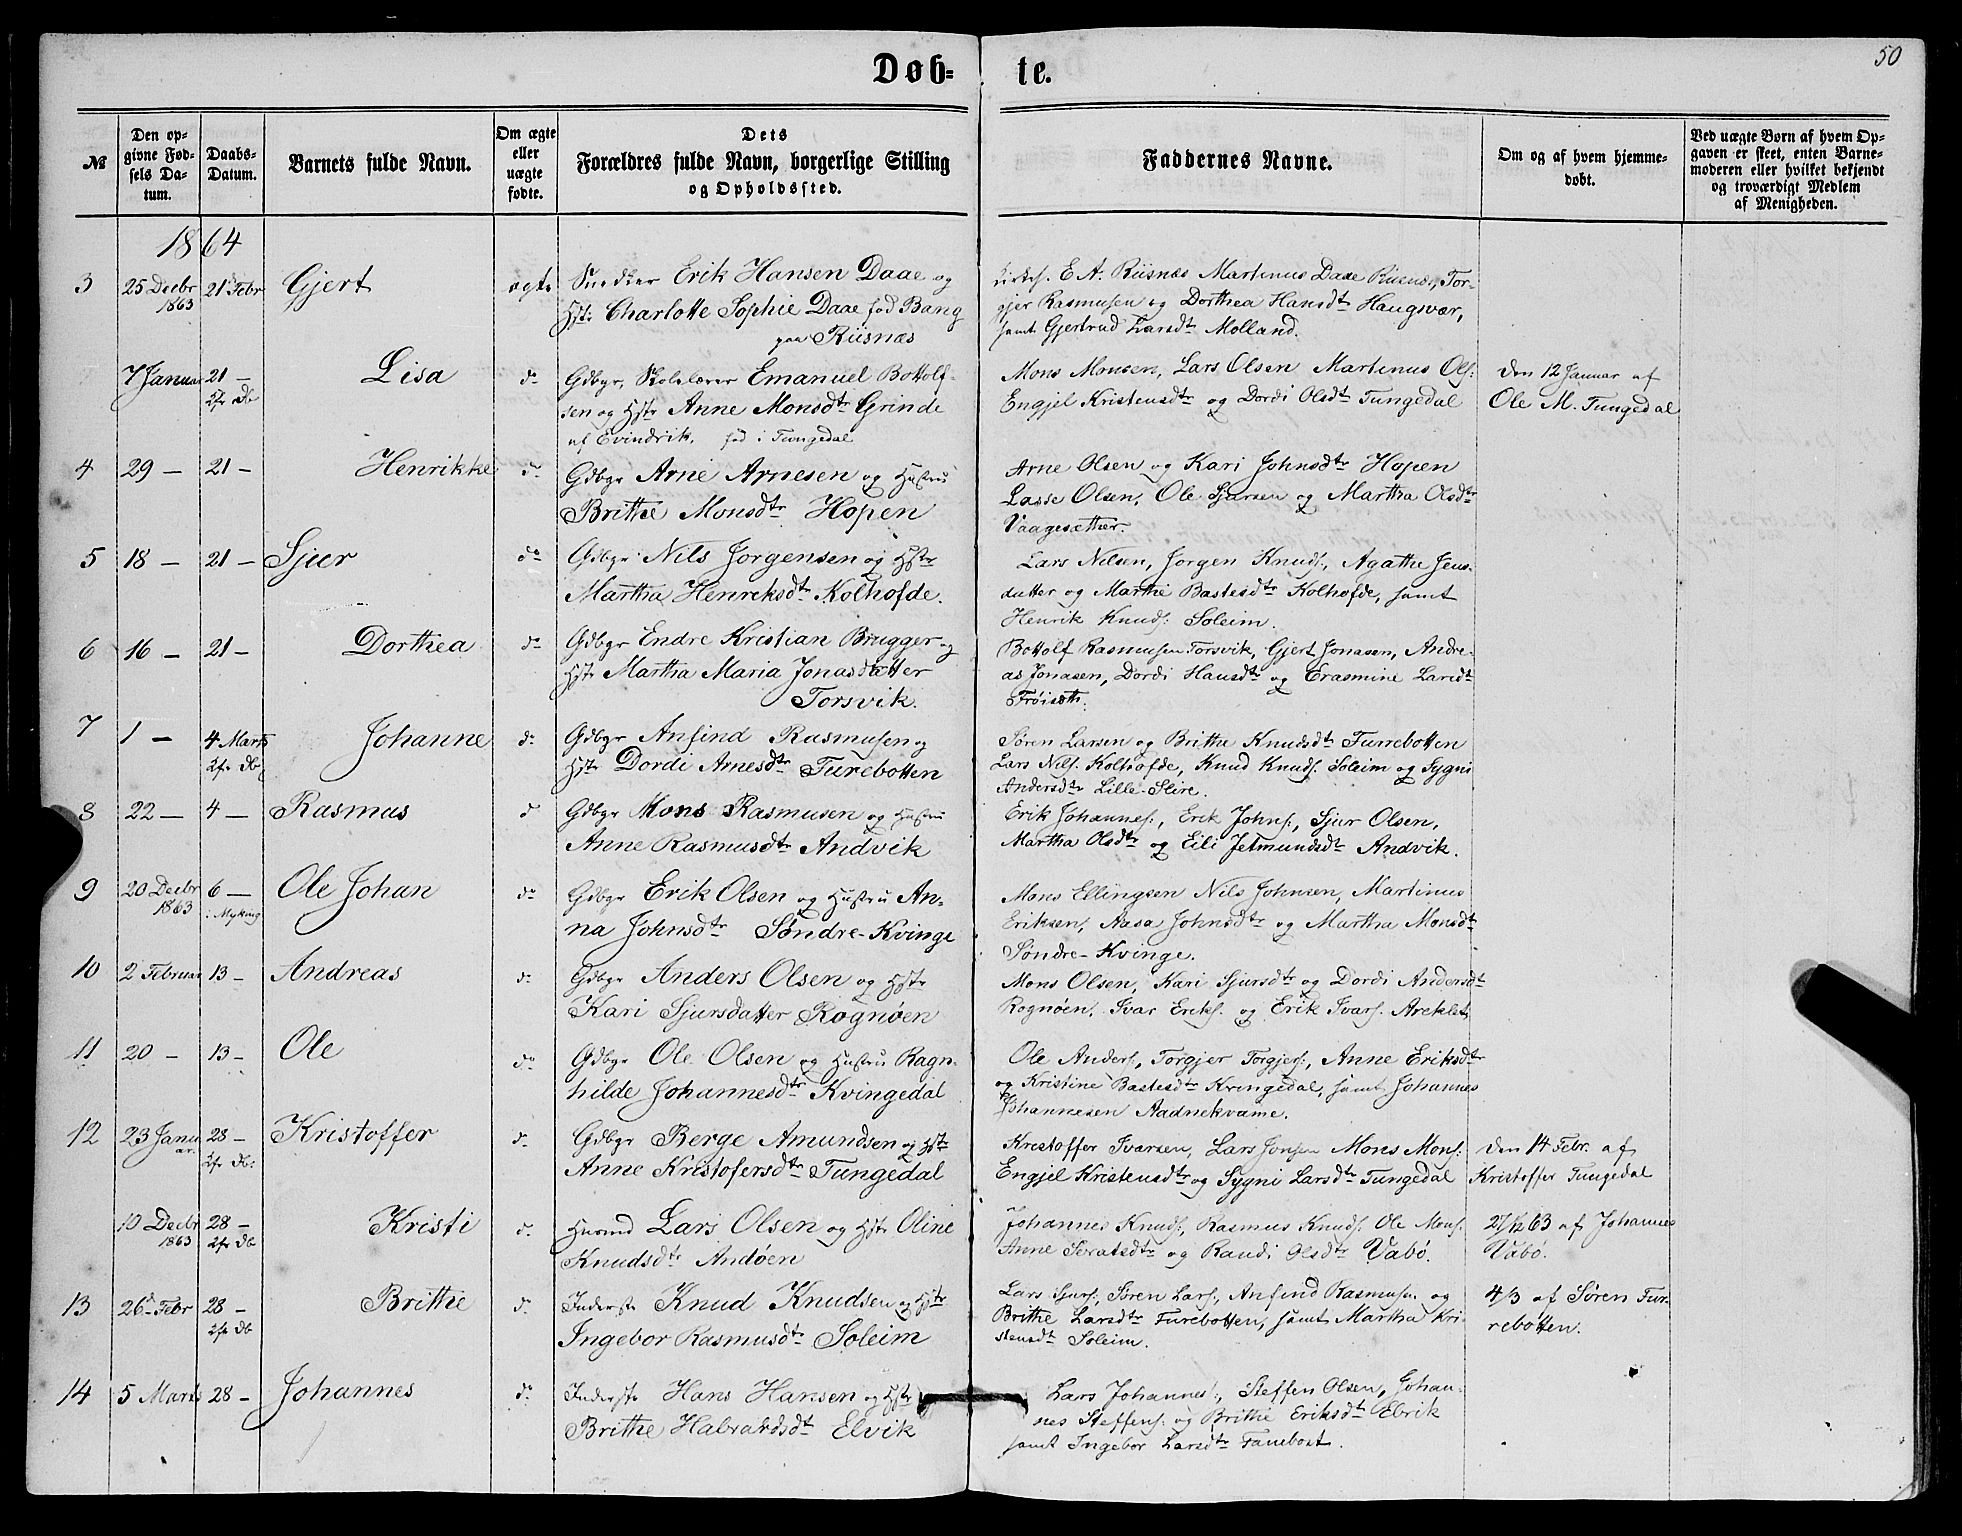 50
Døb- te.
№
Den opgivne Fødsels Datum.
Daabs-Datum.
Barnets fulde Navn.
Om ægte eller uægte fødte.
Dets Forældres fulde Navn, borgerlige Stilling og Opholdssted.
Faddernes Navne.
Om og af hvem hjemmedøbt.
Ved uægte Børn af hvem Opgaven er skeet, enten Barnemoderen eller hvilket bekjendt og troværdigt Medlem af Menigheden.
1864
3 25 Decbr 1863 21 Febr Gjert ægte
Snedker Erik Hansen Daae og
Hstr Charlotte Sophie Daae fød Bang
paa Riisnæs
E. A. Riisnæs Martinus Daae Riisnæs, Tor-
gjer Rasmusen og Dorthea Hansdtr Haugsvær,
samt Gjertrud Larsdtr Molland.
7 Januar 21 - Lisa do
Gdbgr, Skolelærer Emanuel Bottolf-
sen og Hstr Anne Monsdtr Grinde
af Evindvik. fød i Tungedal
Mons Monsen, Lars Olsen Martinus Ols:
Engjel Kristensdtr og Dordi Olsdtr Tungedal
Den 12 Januar af
Ole M. Tungedal
4 29 - 21 - Henrikke do
Gdbgr Arne Arnesen og Hustru
Brithe Monsdtr Hopen
Arne Olsen og Kari Johnsdtr Hopen
Lasse Olsen, Ole Sjursen og Martha Olsdtr
Vaagesæther.
5 18 - 21 - Sjur do
Gdbgr Nils Jørgensen og Hstr
Martha Henreksdtr Kolhofde.
Lars Nilsen, Jørgen Knuds:, Agathe Jens-
datter og Marthe Bastesdtr Kolhofde, samt
Henrik Knuds: Soleim.
6 16 - 21 - Dorthea do
Gdbgr Endre Kristian Brugger og
Hstr Martha Maria Jonasdatter
Torsvik.
Bottolf Rasmusen Torsvik, Gjert Jonasen, Andre-
as Jonasen, Dordi Hansdtr og Erasmine Larsdtr
Frøisæth.
7 1 - 4 Marts Johanne do
Gdbgr Anfind Rasmusen og
Hstr Dordi Arnesdtr Turebotten
Søren Larsen og Brithe Knudsdtr Turrebotten
Lars Nils: Kolhofde, Knud Knuds: Soleim og Sygni
Andersdtr Lille-Slire.
8 22 - 4 - Rasmus do
Gdbgr Mons Rasmusen og Hustru
Anne Rasmusdtr Andvik
Erik Johannes:, Erik Johns:, Sjur Olsen,
Martha Olsdtr og Eili Jetmundsdtr Andvik.
9 20 Decbr 1863 6 - i Myking Ole Johan do
Gdbgr Erik Olsen og Hustru An-
na Johnsdtr Søndre-Kvinge
Mons Ellingsen Nils Johnsen, Martinus
Eriksen, Aasa Johnsdtr og Martha Monsdtr
Søndre-Kvinge.
10 2 Februar 13 - Andreas do
Gdbgr Anders Olsen og Hstr
Kari Sjursdatter Rognøen
Mons Olsen, Kari Sjursdtr og Dordi Andersdtr
Rognøen, Ivar Eriks: og Erik Ivars: Areklet
11 20 - 13 - Ole do
Gdbgr Ole Olsen og Hustru Ragn-
hilde Johannesdtr Kvingedal
Ole Anders:, Torgjer Torgjers:, Anne Eriksdtr
og Kristine Bastesdtr Kvingedal, samt Johannes
Johannesen Aadnekvame.
12 23 Janu-ar 28 - Kristoffer do
Gdbgr Berge Amundsen og Hstr
Anne Kristofersdtr Tungedal
Krestoffer Ivarsen, Lars Jonsen Mons Mons:
Engjel Kristensdtr og Sygni Larsdtr Tungedal
Den 14 Febr. af
Kristoffer Tungedal
10 Decbr 1863 28 - Kristi do
Husmd Lars Olsen og Hstr Oline
Knudsdtr Andøen
Johannes Knuds:, Rasmus Knuds: Ole Mons:
Anne Seratsdtr og Randi Olsdtr Vabø.
27/12 63 af Johannes
Vabø.
13 26 Febr 28 - Brithe do
Inderste Knud Knudsen og Hstr
Ingebor Rasmusdtr Soleim
Lars Sjurs:, Søren Lars:, Anfind Rasmusn og
Brithe Larsdtr Furebotten, samt Martha Kri-
stensdtr Soleim.
4/3 af Søren Tur-
rebotten.
14 5 Marts 28 - Johannes do
Inderste Hans Hansen og Hstr
Brithe Halvardsdtr Elvik
Lars Johannes:, Steffen Olsen, Johan-
nes Steffens: og Brithe Eriksdtr Elvik
samt Ingebor Larsdtr Fanebost.